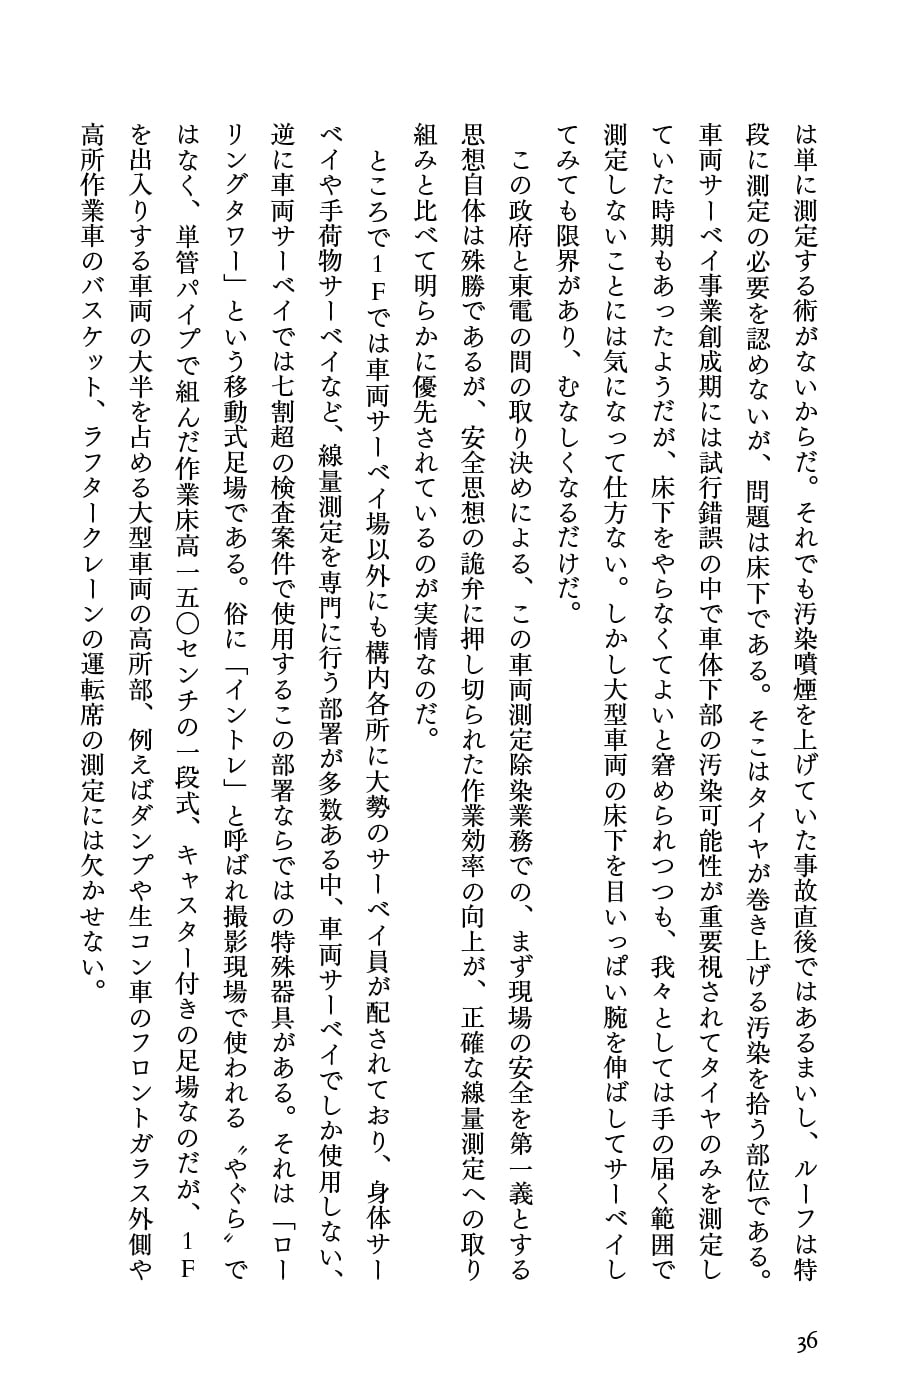 は単に測定する術がないからだ。それでも汚染噴煙を上げていた事故直後ではあるまいし、ルーフは特
段に測定の必要を認めないが、問題は床下である。そこはタイヤが巻き上げる汚染を拾う部位である。
車両サーベイ事業創成期には試行錯誤の中で車体下部の汚染可能性が重要視されてタイヤのみを測定し
ていた時期もあったようだが、床下をやらなくてよいと窘められつつも、我々としては手の届く範囲で
測定しないことには気になって仕方ない。しかし大型車両の床下を目いっぱい腕を伸ばしてサーベイし
てみても限界があり、むなしくなるだけだ。
この政府と東電の間の取り決めによる、この車両測定除染業務での、まず現場の安全を第一義とする
思想自体は殊勝であるが、安全思想の詭弁に押し切られた作業効率の向上が、正確な線量測定への取り
組みと比べて明らかに優先されているのが実情なのだ。
ところで1Fでは車両サーベイ場以外にも構内各所に大勢のサーベイ員が配されており、身体サー
ベイや手荷物サーベイなど、線量測定を専門に行う部署が多数ある中、車両サーベイでしか使用しない、
逆に車両サーベイでは七割超の検査案件で使用するこの部署ならではの特殊器具がある。それは「ロー
リングタワー」という移動式足場である。俗に「イントレ」と呼ばれ撮影現場で使われる〝やぐら〟で
はなく、単管パイプで組んだ作業床高一五〇センチの一段式、キャスター付きの足場なのだが、1F
を出入りする車両の大半を占める大型車両の高所部、例えばダンプや生コン車のフロントガラス外側や
高所作業車のバスケット、ラフタークレーンの運転席の測定には欠かせない。
36